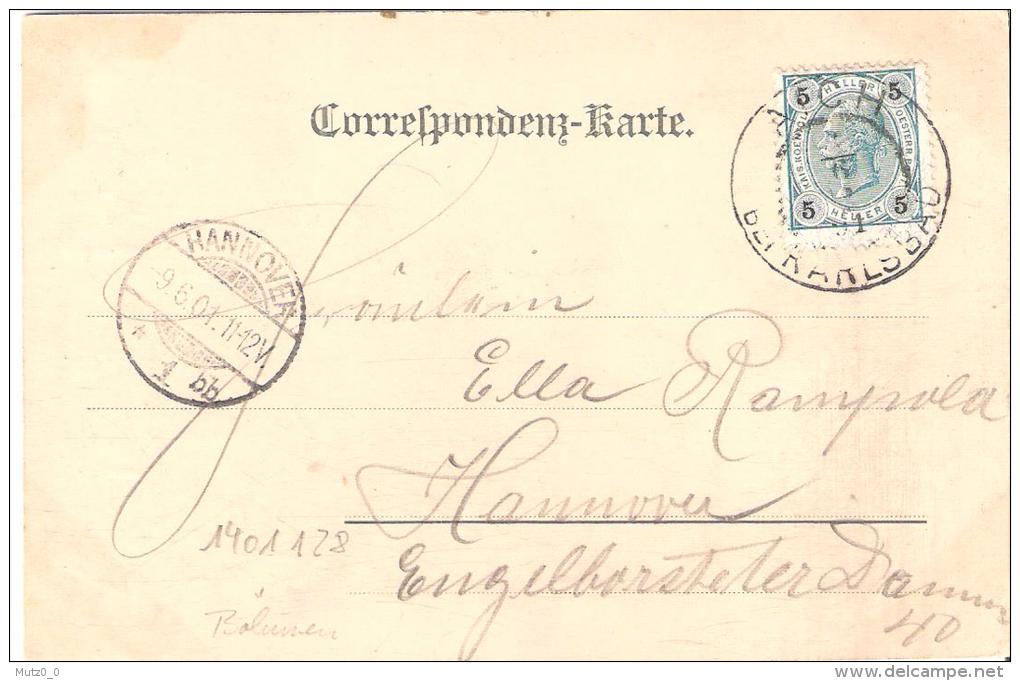 Correspondenz-Karte.
5 HELLER 5
KAIS. KOENIGL. OESTERR. POST
5 HELLER 5
AICH
BEI KARLSBAD
HANNOVER
-9.6.01.11-12V.
* 1 bb
Fräulein
Ella Rampola
Hannover
Engelborsteter Damm
40
1401128
Böhmen
Mutz0_0
www.delcampe.net